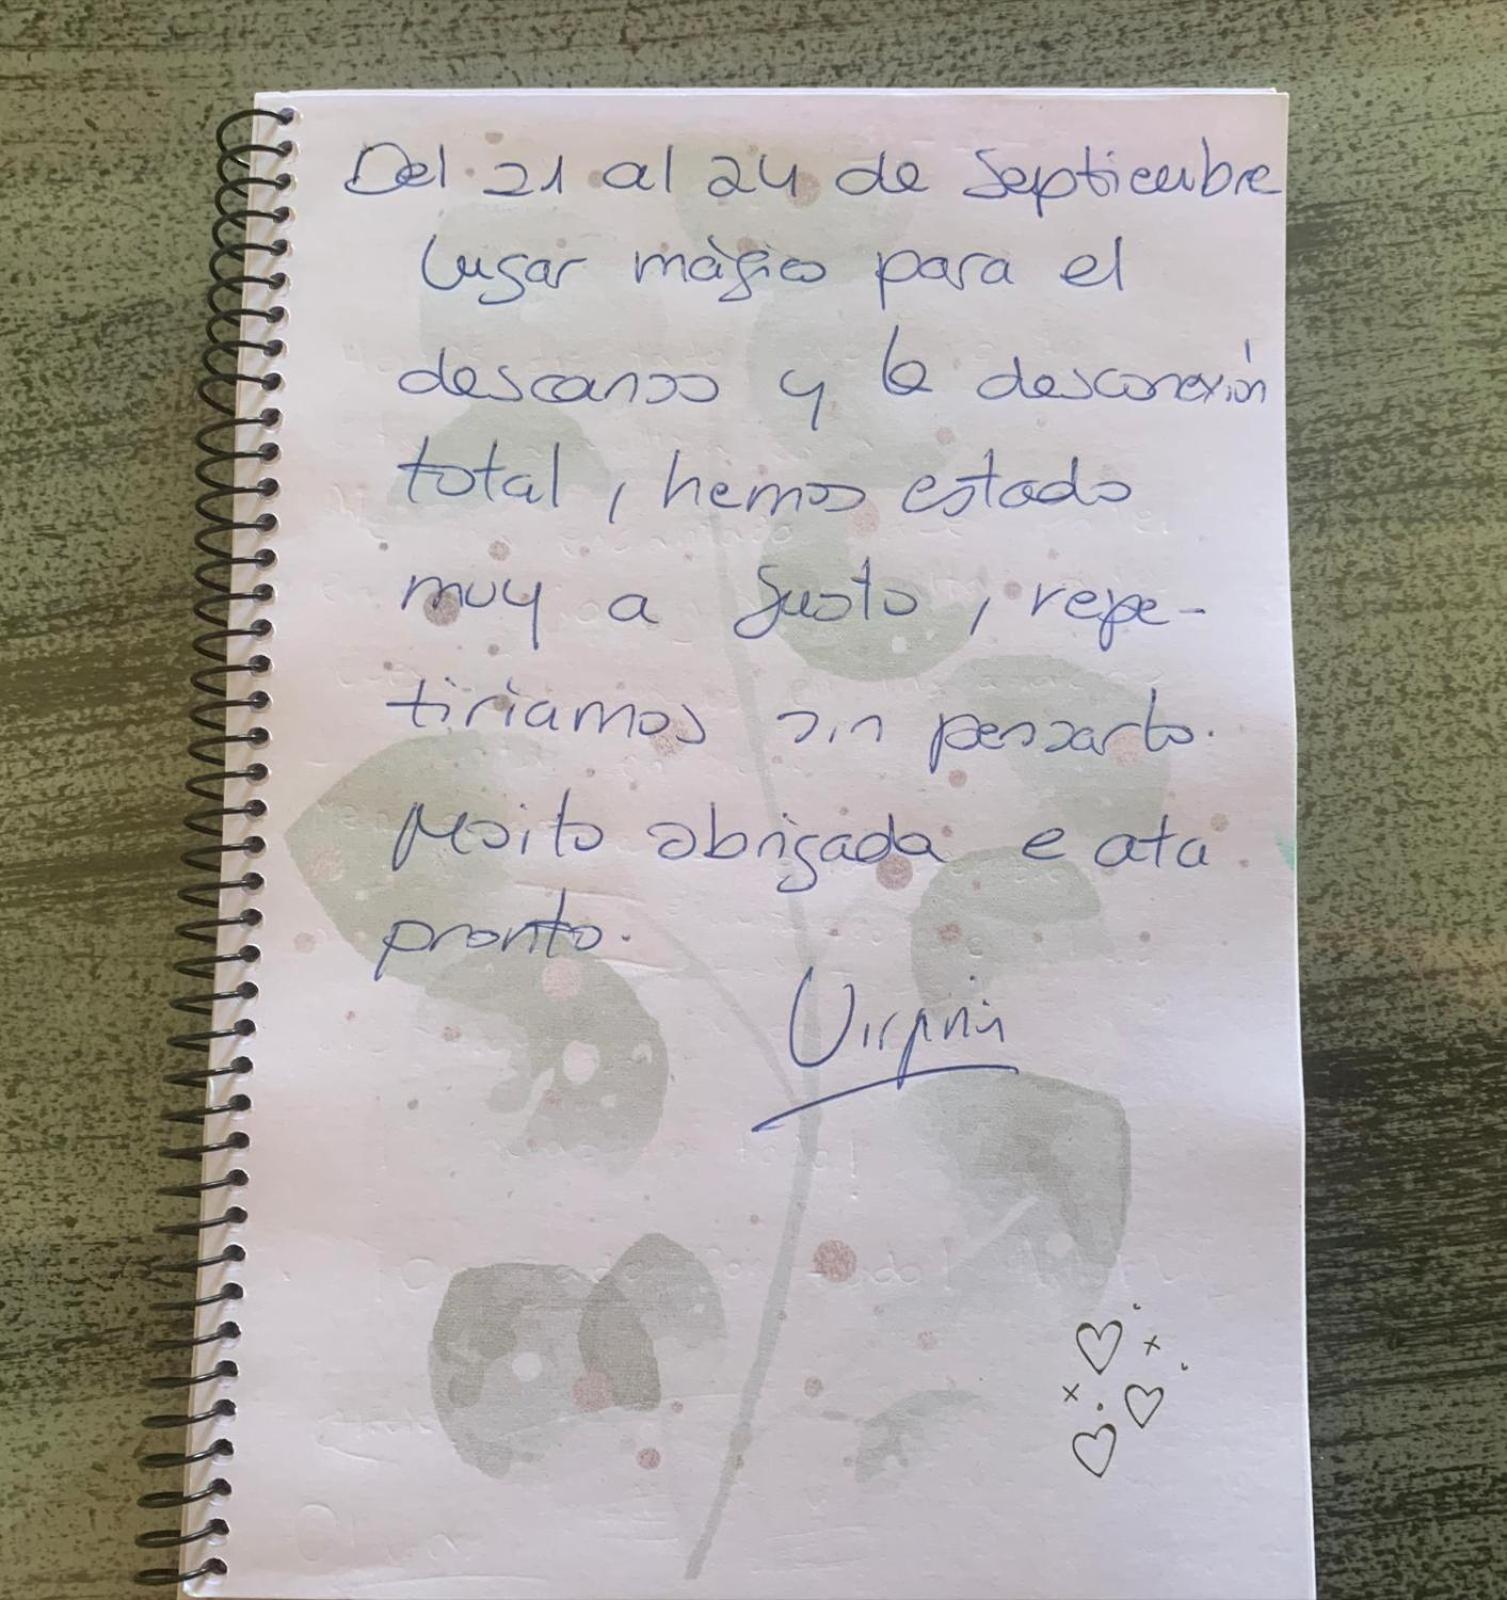 Del 21 al 24 de Septiembre
lugar màgico para el
descanso y la desconexión
total, hemos estado
muy a gusto, repe-
tiriamos sin pensarlo.
Moito obrigada e ata
pronto.
Virginia